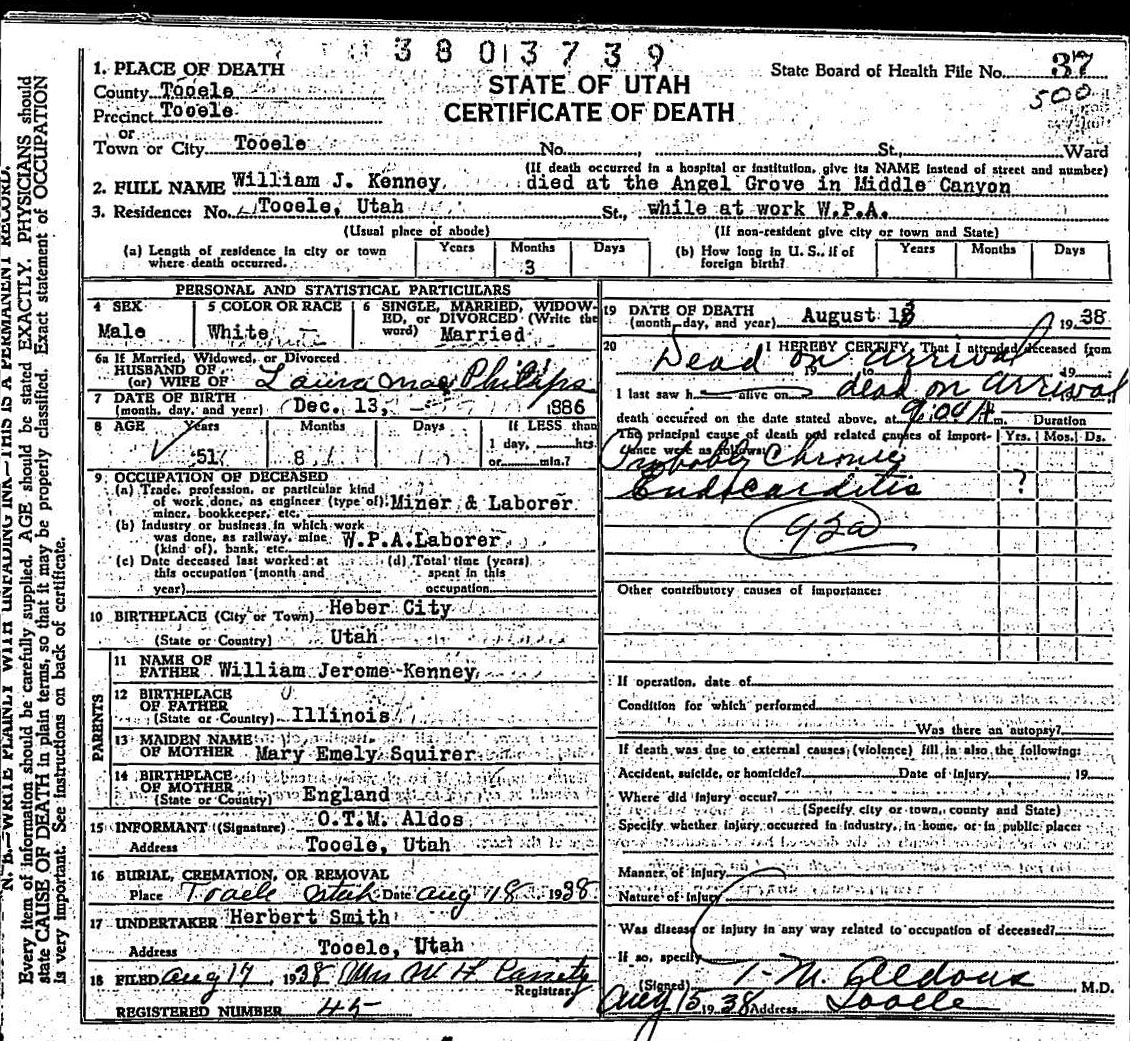 3 8 0 1 3 7 3 9
1. PLACE OF DEATH
County Tooele
Precinct Tooele
or
Town or City Tooele No. , St., Ward
STATE OF UTAH
CERTIFICATE OF DEATH
State Board of Health File No. 37
500
(If death occurred in a hospital or institution, give its NAME instead of street and number)
2. FULL NAME William J. Kenney died at the Angel Grove in Middle Canyon
3. Residence: No. Tooele, Utah St., while at work W.P.A.
(Usual place of abode) (If non-resident give city or town and State)
(a) Length of residence in city or town where death occurred. Years Months 3 Days
(b) How long in U. S., if of foreign birth? Years Months Days
PERSONAL AND STATISTICAL PARTICULARS
4 SEX Male
5 COLOR OR RACE White
6 SINGLE, MARRIED, WIDOW-
ED, or DIVORCED (Write the
word) Married
6a If Married, Widowed, or Divorced
HUSBAND OF
(or) WIFE OF Laura Mae Philips
7 DATE OF BIRTH
(month, day, and year) Dec. 13, 1886
8 AGE Years 51 Months 8 Days If LESS than
1 day, hrs.
or min.?
9 OCCUPATION OF DECEASED
(a) Trade, profession, or particular kind
of work done, as engineer (type of) Miner & Laborer
miner, bookkeeper, etc.
(b) Industry or business in which work
was done, as railway, mine W.P.A. Laborer
(kind of), bank, etc.
(c) Date deceased last worked at
this occupation (month and
year)
(d) Total time (years)
spent in this
occupation
10 BIRTHPLACE (City or Town) Heber City
(State or Country) Utah
PARENTS
11 NAME OF
FATHER William Jerome Kenney
12 BIRTHPLACE
OF FATHER
(State or Country) Illinois
13 MAIDEN NAME
OF MOTHER Mary Emely Squirer
14 BIRTHPLACE
OF MOTHER
(State or Country) England
15 INFORMANT (Signature) O.T.M. Aldos
Address Tooele, Utah
16 BURIAL, CREMATION, OR REMOVAL
Place Tooele Utah Date Aug 18 1938
17 UNDERTAKER Herbert Smith
Address Tooele, Utah
18 FILED Aug 17, 1938 Mrs M H Cassity
Registrar
REGISTERED NUMBER 45
19 DATE OF DEATH
(month, day, and year) August 13 1938
20 I HEREBY CERTIFY, That I attended deceased from
Dead on arrival 19 to 19
I last saw h alive on dead on arrival
death occurred on the date stated above, at 9:04 A m.
The principal cause of death and related causes of import-
ance were as follows:
Duration
Yrs. Mos. Ds.
Probably Chronic
Endocarditis ?
92a
Other contributory causes of importance:
If operation, date of
Condition for which performed
Was there an autopsy?
If death was due to external causes (violence) fill in also the following:
Accident, suicide, or homicide? Date of Injury 19
Where did injury occur?
(Specify city or town, county and State)
Specify whether injury occurred in industry, in home, or in public place:
Manner of injury
Nature of injury
Was disease or injury in any way related to occupation of deceased?
If so, specify
(Signed) T. M. Aldous M.D.
Aug 15 1938 Address Tooele
N. B.—WRITE PLAINLY WITH UNFADING INK—THIS IS A PERMANENT RECORD.
Every item of information should be carefully supplied. AGE should be stated EXACTLY. PHYSICIANS should
state CAUSE OF DEATH in plain terms, so that it may be properly classified. Exact statement of OCCUPATION
is very important. See instructions on back of certificate.